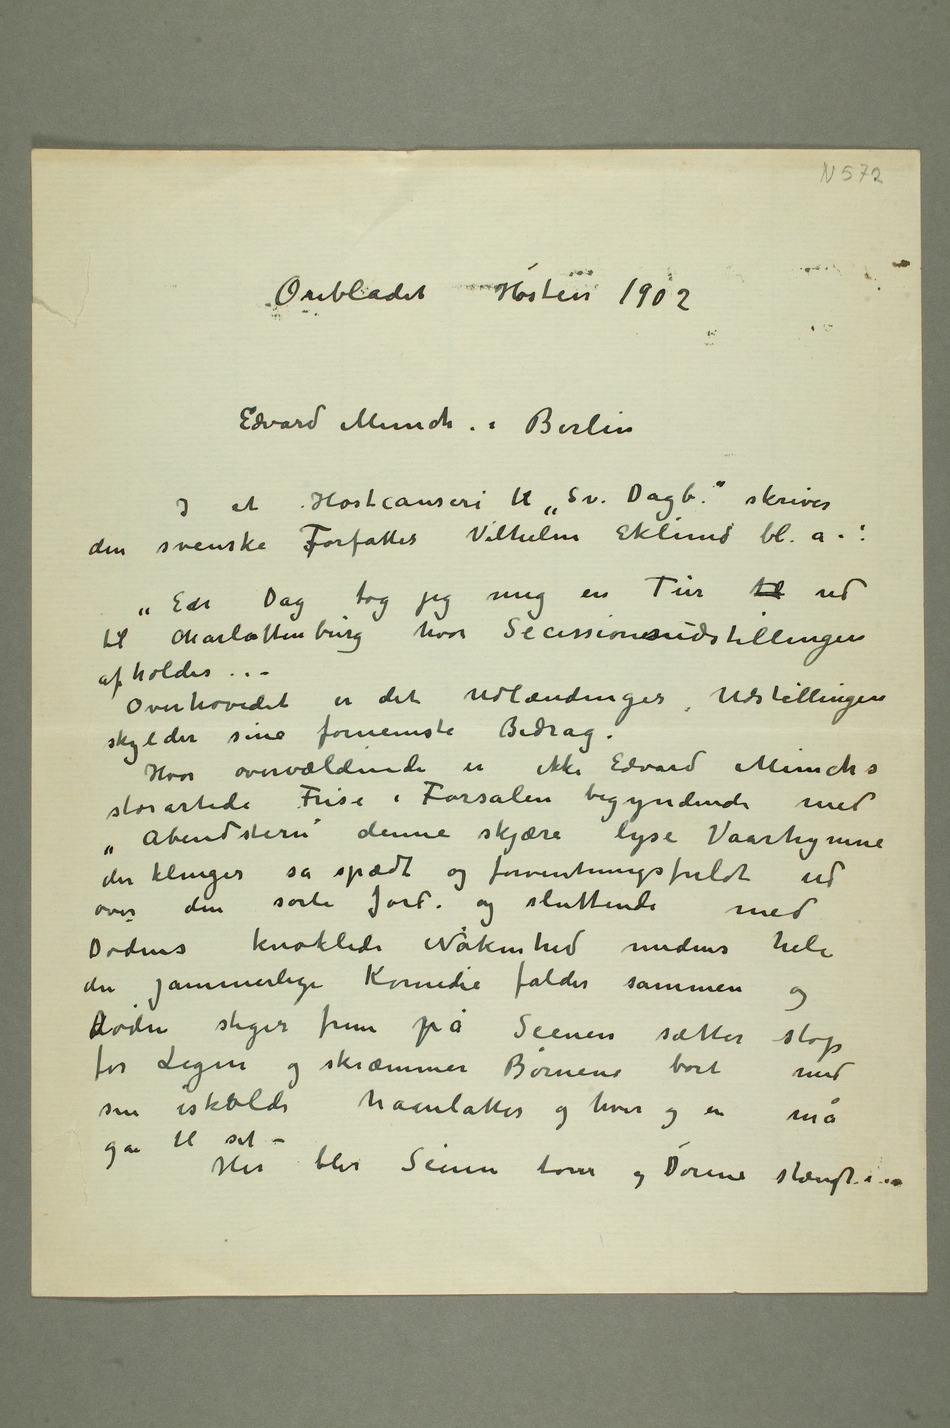 N 572
Ørebladet Høsten 1902
Edvard Munch i Berlin
I et Høstcauseri til „Sv. Dagb.“ skriver
den svenske Forfatter Vilhelm Eklund bl. a.:
„Een Dag tog jeg mig en Tur til ud
til Charlottenburg hvor Secessionsudstillingen
afholdes ...
Overhovedet er det Udlændinger, Udstillingen
skylder sine fornemste Bidrag.
Hvor overvældende er ikke Edvard Munchs
storartede Frise i Forsalen begyndende med
„Abendstern“ denne skjære lyse Vaarhymne
der klinger så spædt og forventningsfuldt ud
over den sorte Jord. og sluttende med
Dødens knoklede Nåkenhed medens hele
den jammerlige Komedie falder sammen og
Døden stiger frem på Scenen sætter stop
for Legen og skræmmer Børnene bort med
sin iskolde haanlatter og hver og en må
gaa til sit –
Her blir Scenen tom og Dørene stængt ...